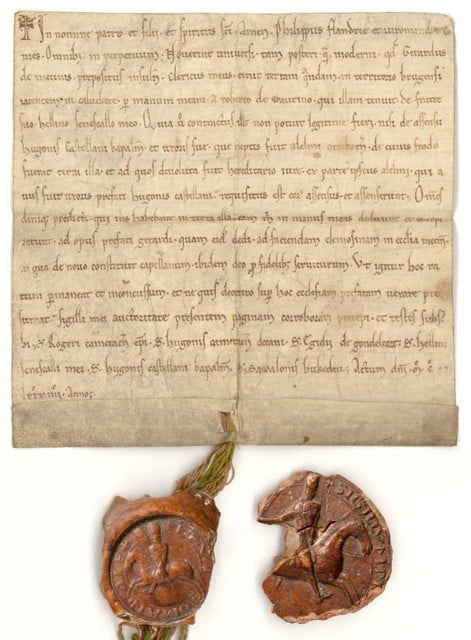 In nomine patris et filij et spiritus sc̄i . Amen . Philippus flandrie et viromandie co
mes . Omnib; in perpetuum . Noverint universi . tam posteri q̄ moderni . qd̄ Gerardus
de mecinis prepositus insulen̄ . Clericus meus emit terram quandam in territorio brugensi
iacentem in p manum meam . a roberto de waurino . qui illam tenuit de fratre
suo hellino senescalco meo . Quia uō contractus ille non potuit legitime fieri . nisi de assensu
hugonis castellani bapalm̄ . et uxoris sue . que neptis fuit alelmi de cuius feodo
fuerat terra illa . et ad quos devoluta fuit hereditario iure . ex parte ipsius alelmi . qui a
fuit uxoris prefati hugonis castellani . requisitus est eor̄ assensus . et assenserunt . Om̄s
denique predicti . qui ius habebant in terra illa . eam in manus meas dederunt et
ad opus prefati gerardi . quam ei dedi . ad faciendam elemosinam in ecclia
in qua de novo constituit capellanum . ibidem deo p fidelib; serviturum . Ut igitur hoc ra
tum permaneat et inconcussum . et ne quis deo sup hoc ecclesiam prefatam vexare pre
sumat . sigilli mei auctoritate presentem paginam corroborari precepi . et testes subscri
bi . S. Rogeri camerac̄ ep̄i . S. hugonis camerac̄ decani . S. Egidij de gondelcort . S. hellini
senescalli mei . S. hugonis castellani bapalm̄ . S. Sawalonis hukedeu . Actum dn̄i . M̊ . C̊ .
lxxx iiij . Anno .
SIGILLVM